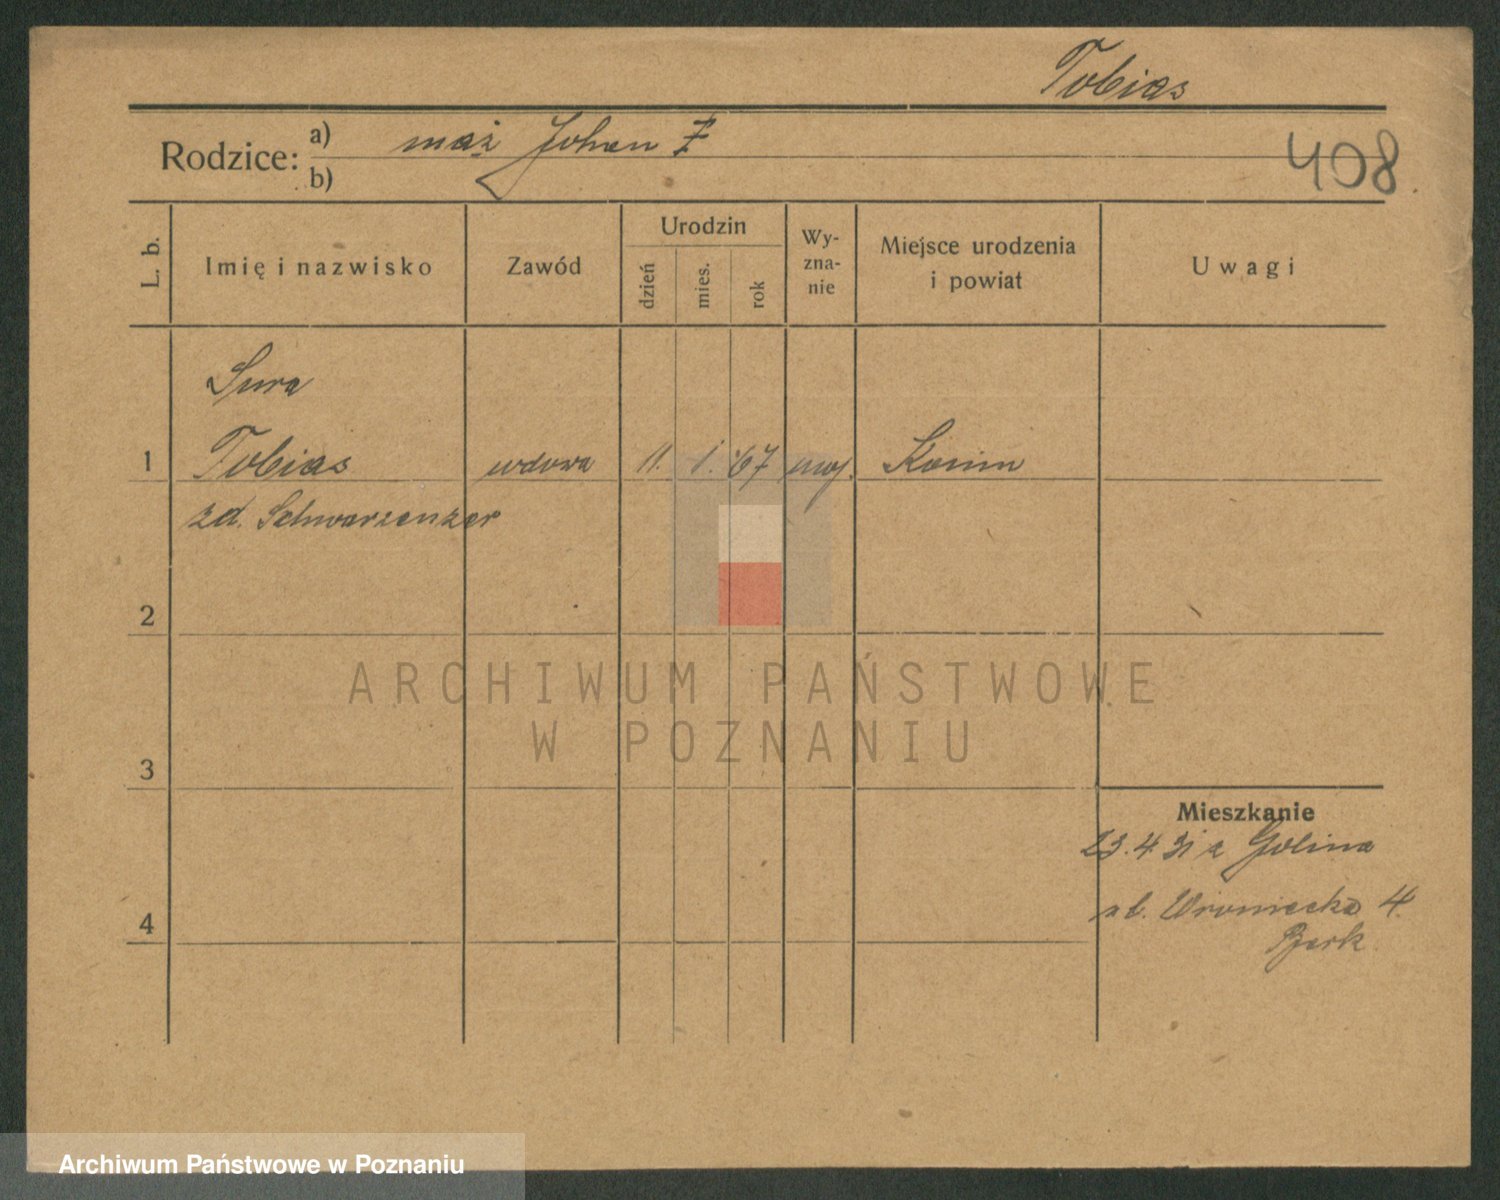 Tobias
Rodzice: a) mąż Johan Ƶ
b)
408.
L. b. Imię i nazwisko Zawód Urodzin dzień mies. rok Wy-zna-nie Miejsce urodzenia i powiat Uwagi
Sura
1 Tobias wdowa 11. 1. 67 moj. Konin
zd. Schwarzenzer
2
3
Mieszkanie
23.4.31 z Golina
4 ul. Wroniecka 4.
ARCHIWUM PAŃSTWOWE
W POZNANIU
Archiwum Państwowe w Poznaniu